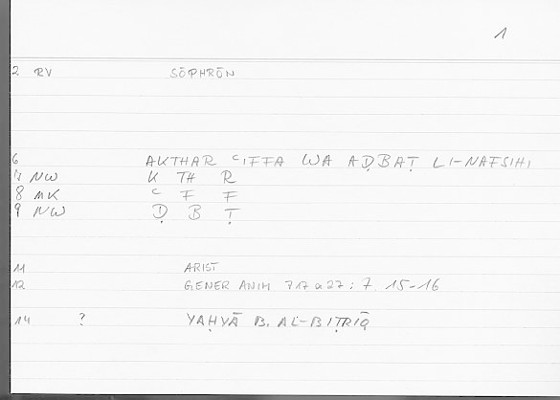 1
2 RV SŌPHRŌN
6 AKTHAR ʿIFFA WA AḌBAṬ LI-NAFSIHI
7 NW K TH R
8 MK ʿ F F
9 NW Ḍ B Ṭ
11 ARIST
12 GENER ANIM 717 a 27 ; 7. 15-16
14 ? YAḤYĀ B. AL-BIṬRĪQ